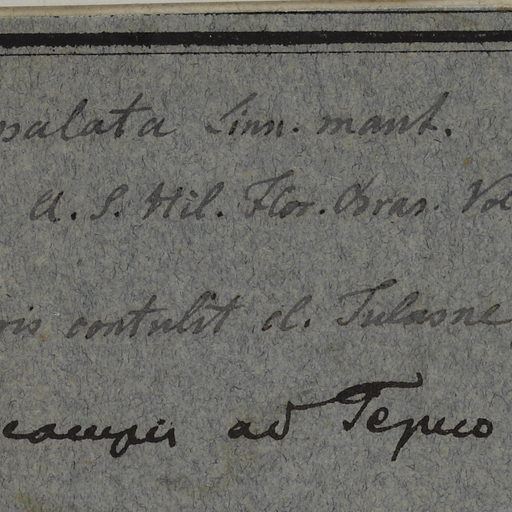 palata Linn. mant.
A. S. Hil. Flor. Bras. Vol
ris contulit cl. Tulasne
campis ad Tepico